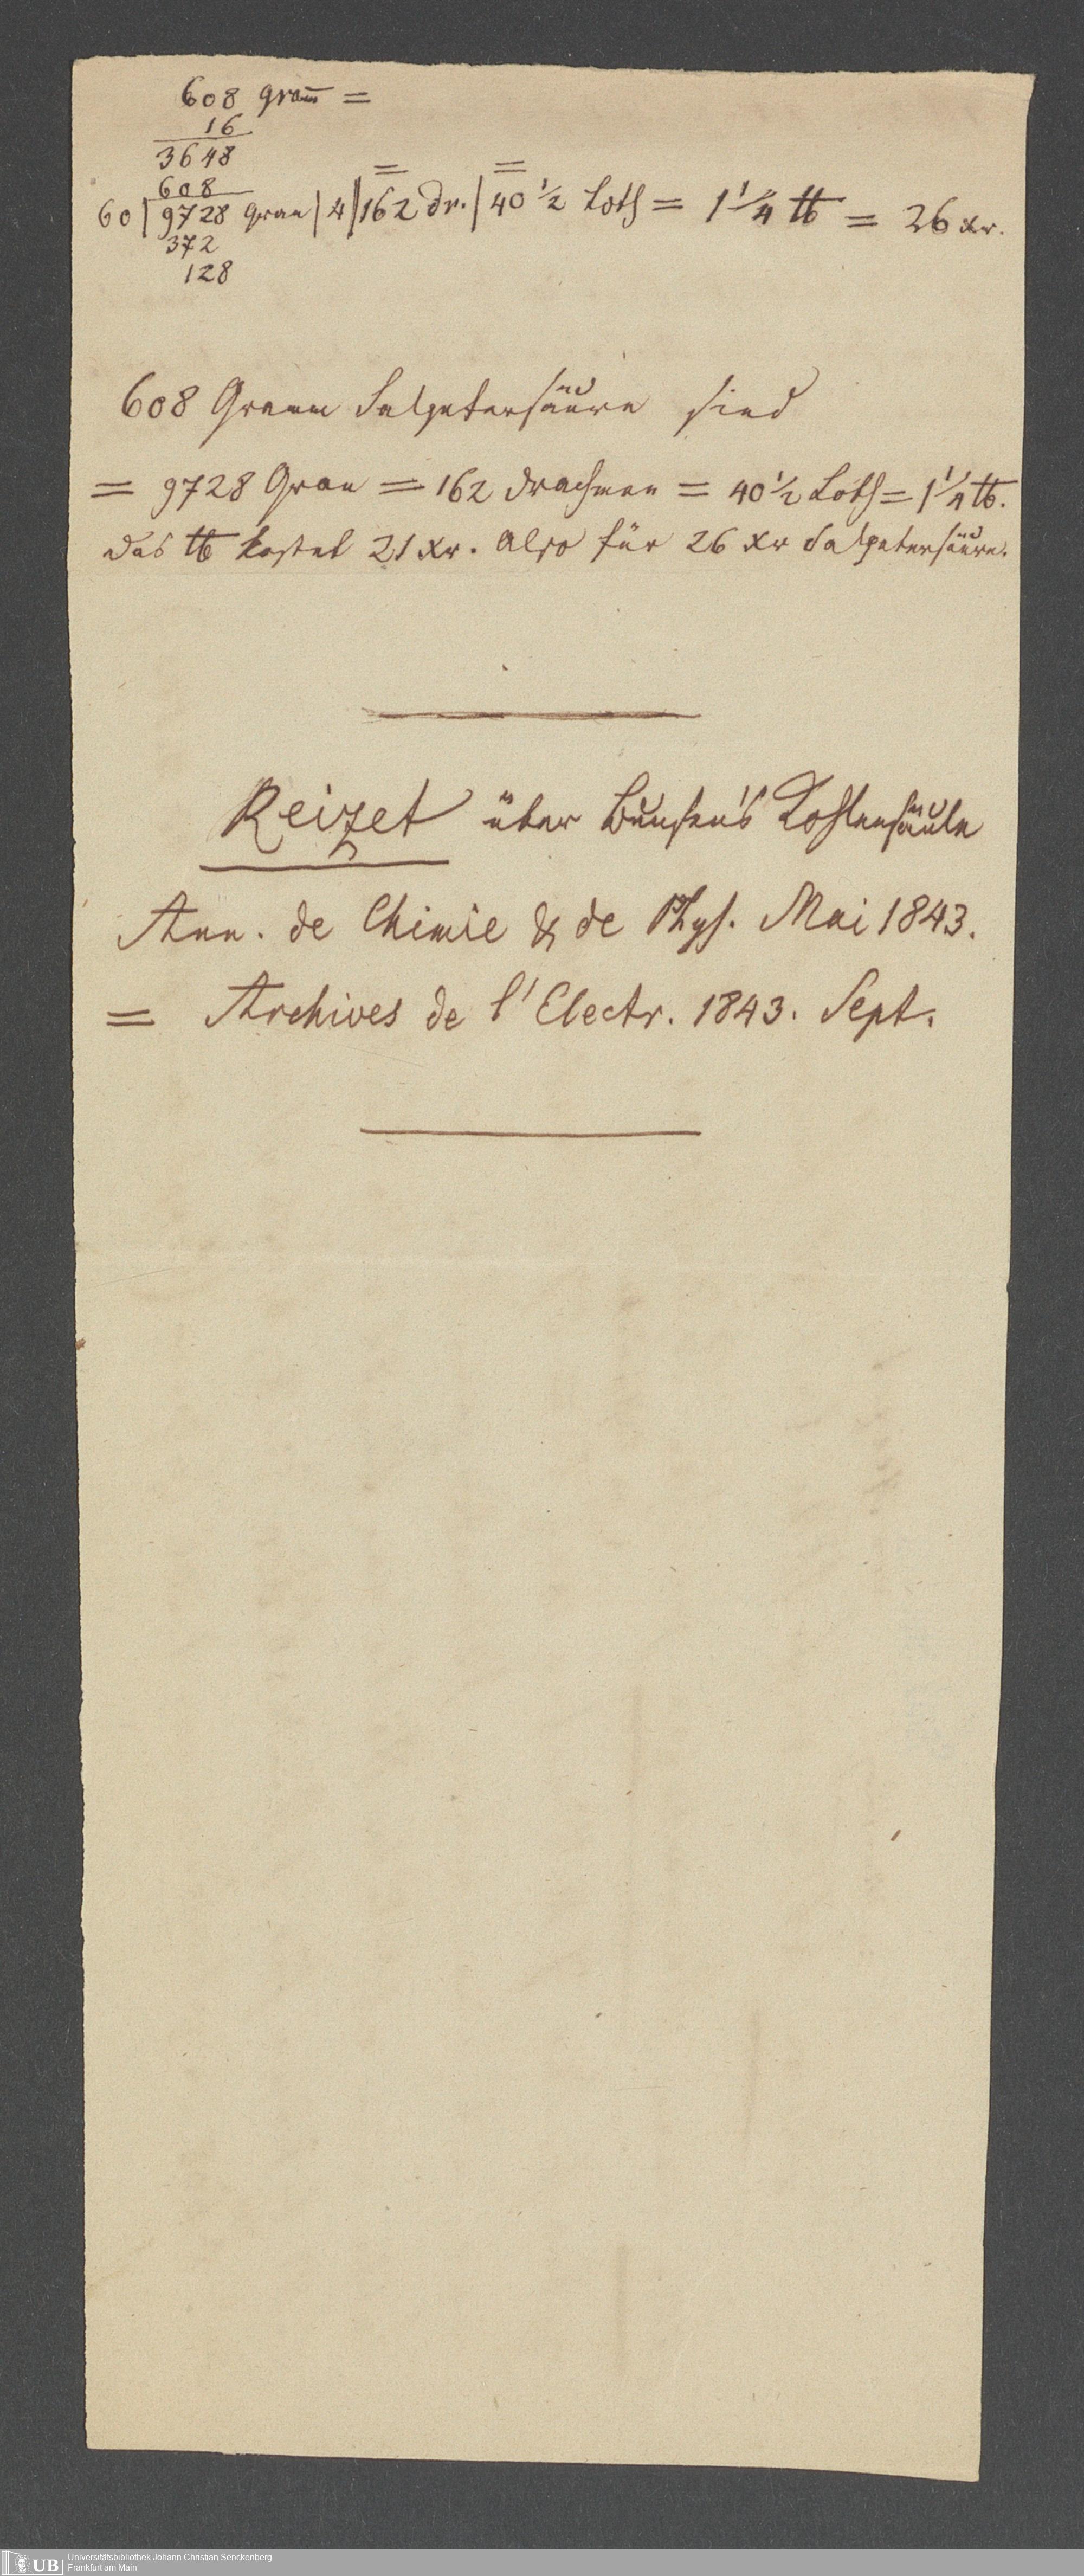 608 Gram̅ =
16
3648
608
60 | 9728 Gran | 4 | 162 Dr. | 40 ½ Loth = 1 ¼ ℔ = 26 xr.
372
128
608 Gramm Salpetersäure sind
= 9728 Gran = 162 Drachmen = 40 ½ Loth = 1 ¼ ℔.
Das ℔ kostet 21 xr. Also für 26 xr Salpetersäure.
Reizet über Bunsen's Kohlensäule
Ann. de Chimie & de Phys. Mai 1843.
= Archives de l'Electr. 1843. Sept.
UB Universitätsbibliothek Johann Christian Senckenberg
Frankfurt am Main